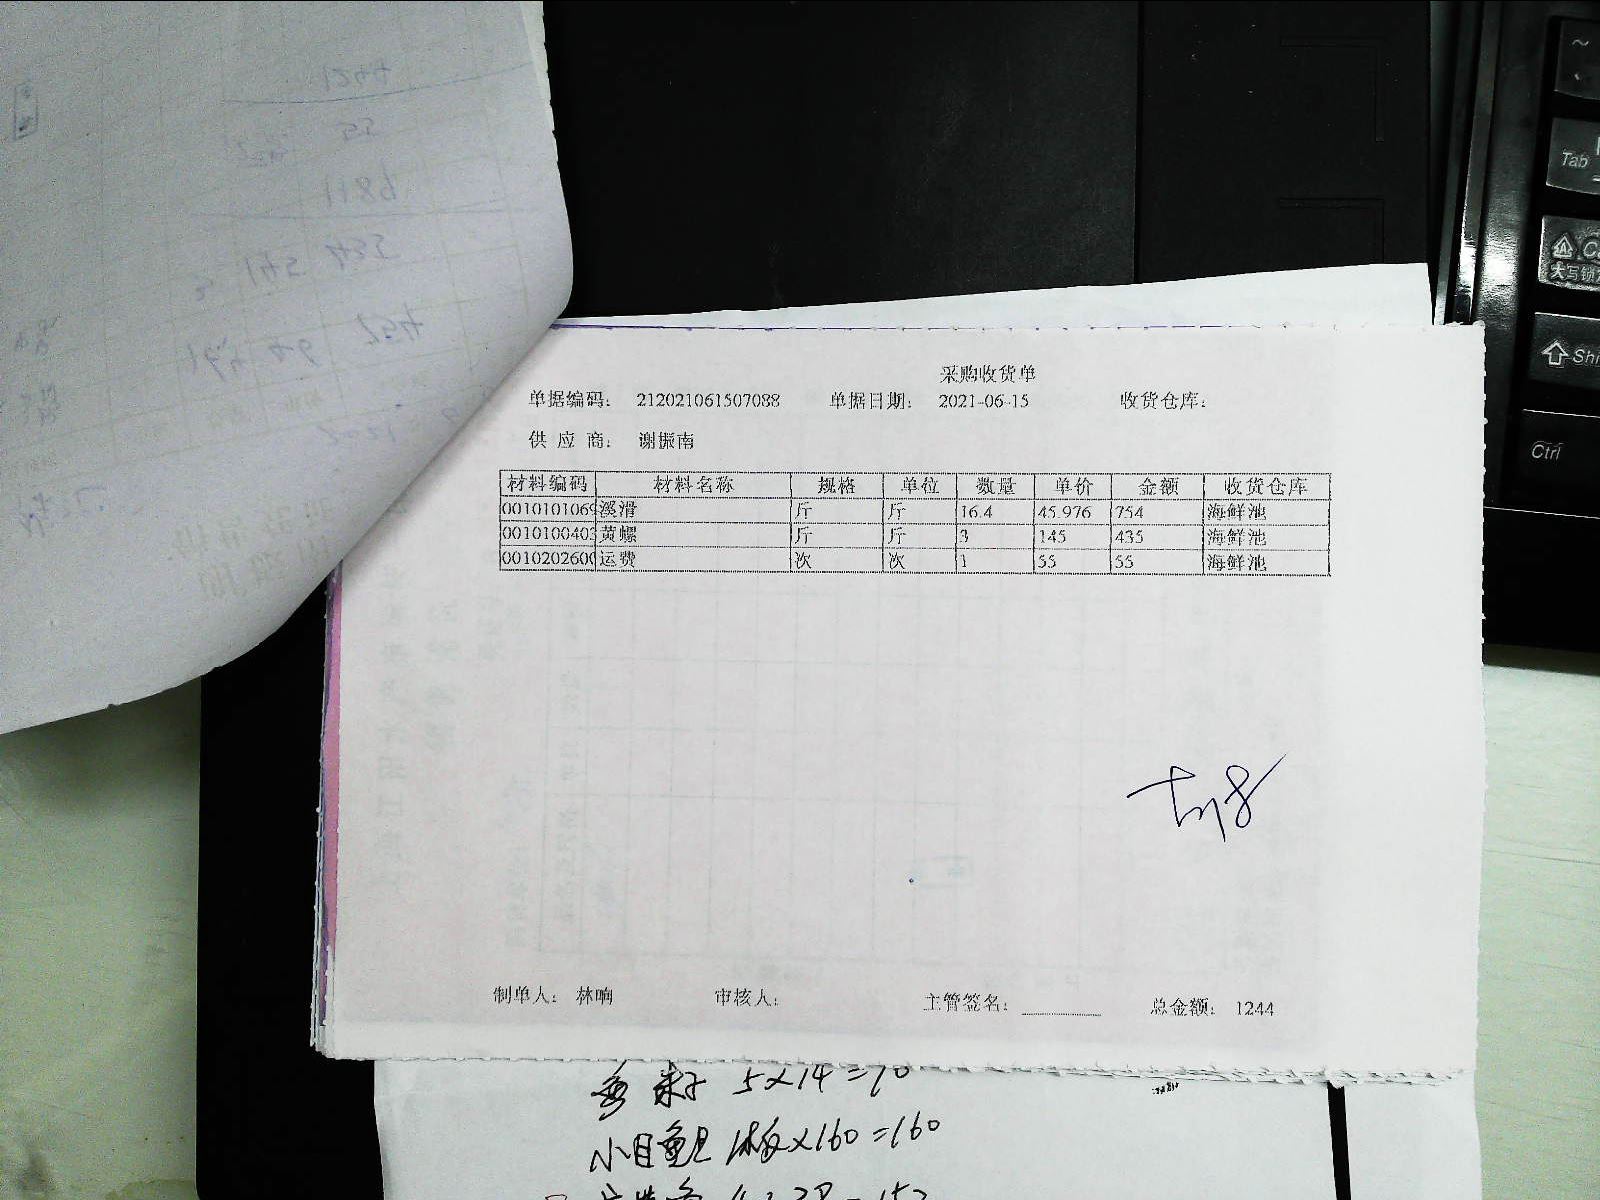 采购收货单
单据编码: 212021061507088 单据日期: 2021-06-15 收货仓库:
供 应 商: 谢振南
材料编码 材料名称 规格 单位 数量 单价 金额 收货仓库
0010101069 溪滑 斤 斤 16.4 45.976 754 海鲜池
0010100403 黄螺 斤 斤 3 145 435 海鲜池
0010202600 运费 次 次 1 55 55 海鲜池
制单人: 林响 审核人: 主管签名: 总金额: 1244
5×14=70
小目鱼 1板×160=160
Tab
大写锁
Shi
Ctrl